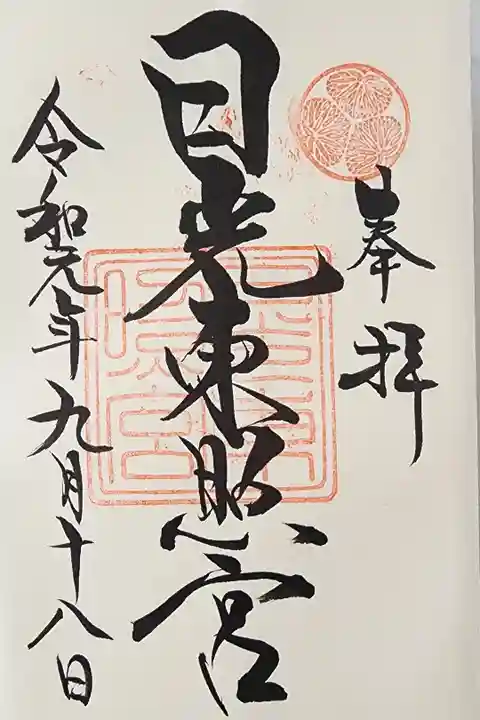 奉拝
日光東照宮
令和元年九月十八日